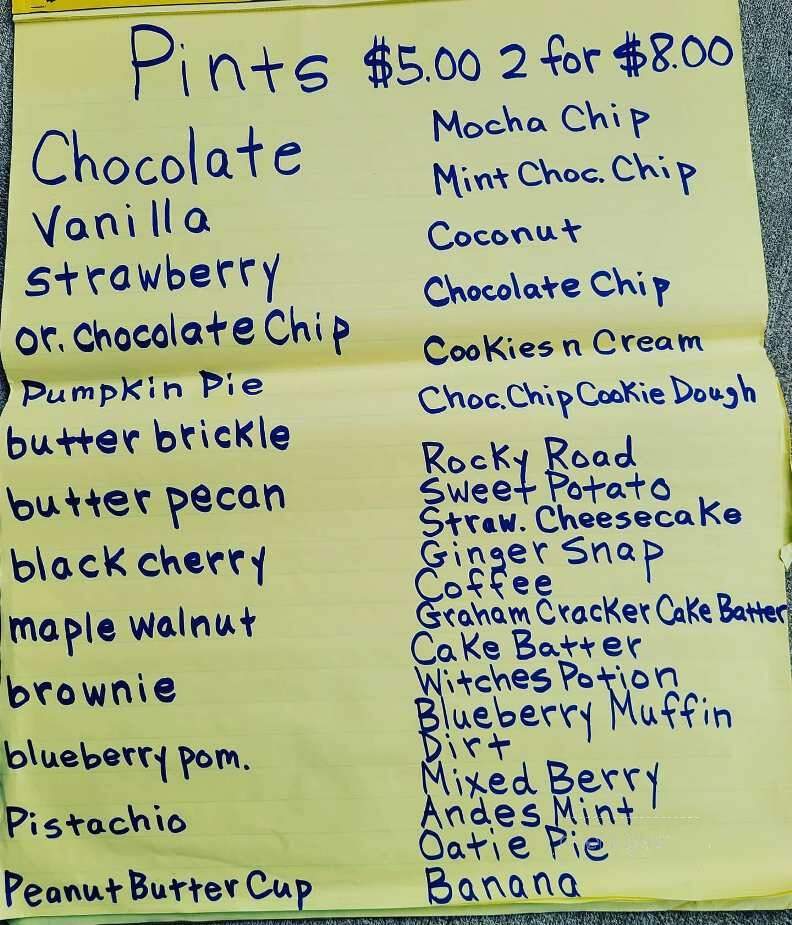 Pints $5.00 2 for $8.00
Chocolate
Vanilla
strawberry
or. chocolate Chip
Pumpkin Pie
butter brickle
butter pecan
black cherry
maple walnut
brownie
blueberry pom.
Pistachio
Peanut Butter Cup
Mocha Chip
Mint Choc. Chip
Coconut
Chocolate Chip
Cookies n Cream
Choc. Chip Cookie Dough
Rocky Road
Sweet Potato
Straw. Cheesecake
Ginger Snap
Coffee
Graham Cracker Cake Batter
Cake Batter
Witches Potion
Blueberry Muffin
Dirt
Mixed Berry
Andes Mint
Oatie Pie
Banana